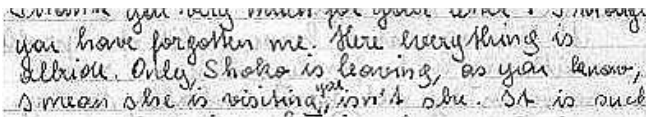 you very much for your
you have forgotten me. Here everything is
allride. Only Shoko is leaving, as you know,
I mean she is visiting you, isn't she. It is such